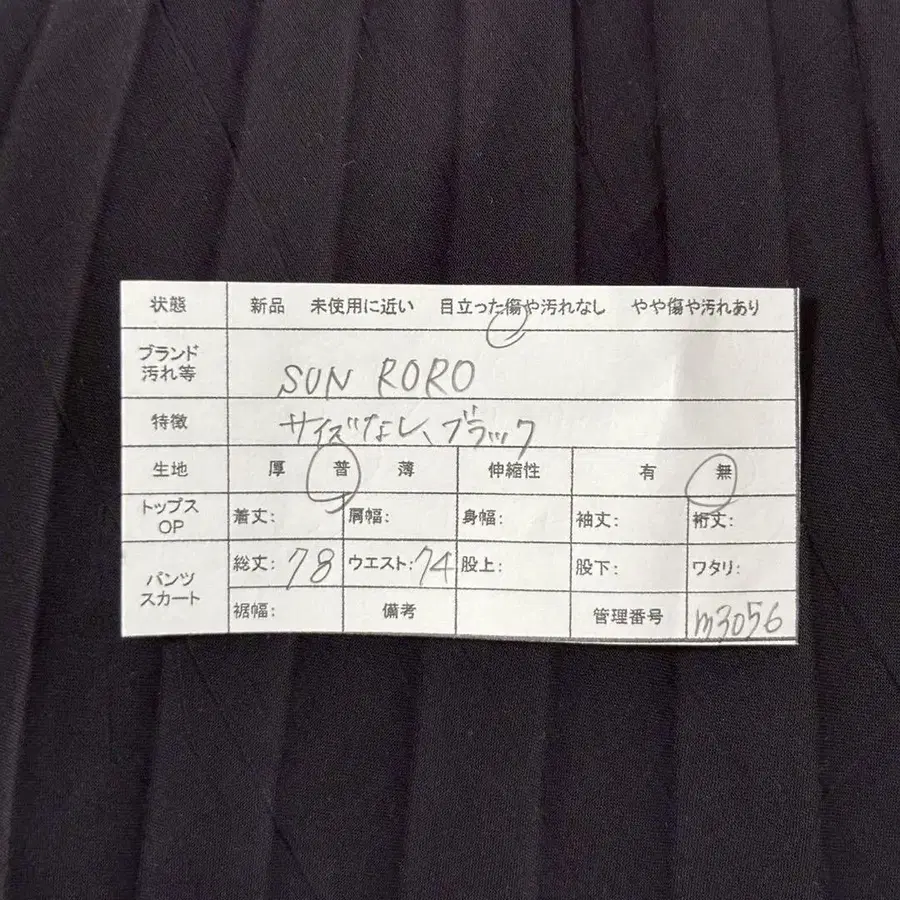 状態 新品 未使用に近い 目立った傷や汚れなし やや傷や汚れあり
ブランド
汚れ等
SUN RORO
特徴 サイズなし、ブラック
生地 厚 普 薄 伸縮性 有 無
トップス
OP
着丈: 肩幅: 身幅: 袖丈: 裄丈:
パンツ
スカート
総丈:78 ウエスト:74 股上: 股下: ワタリ:
裾幅: 備考 管理番号 m3056